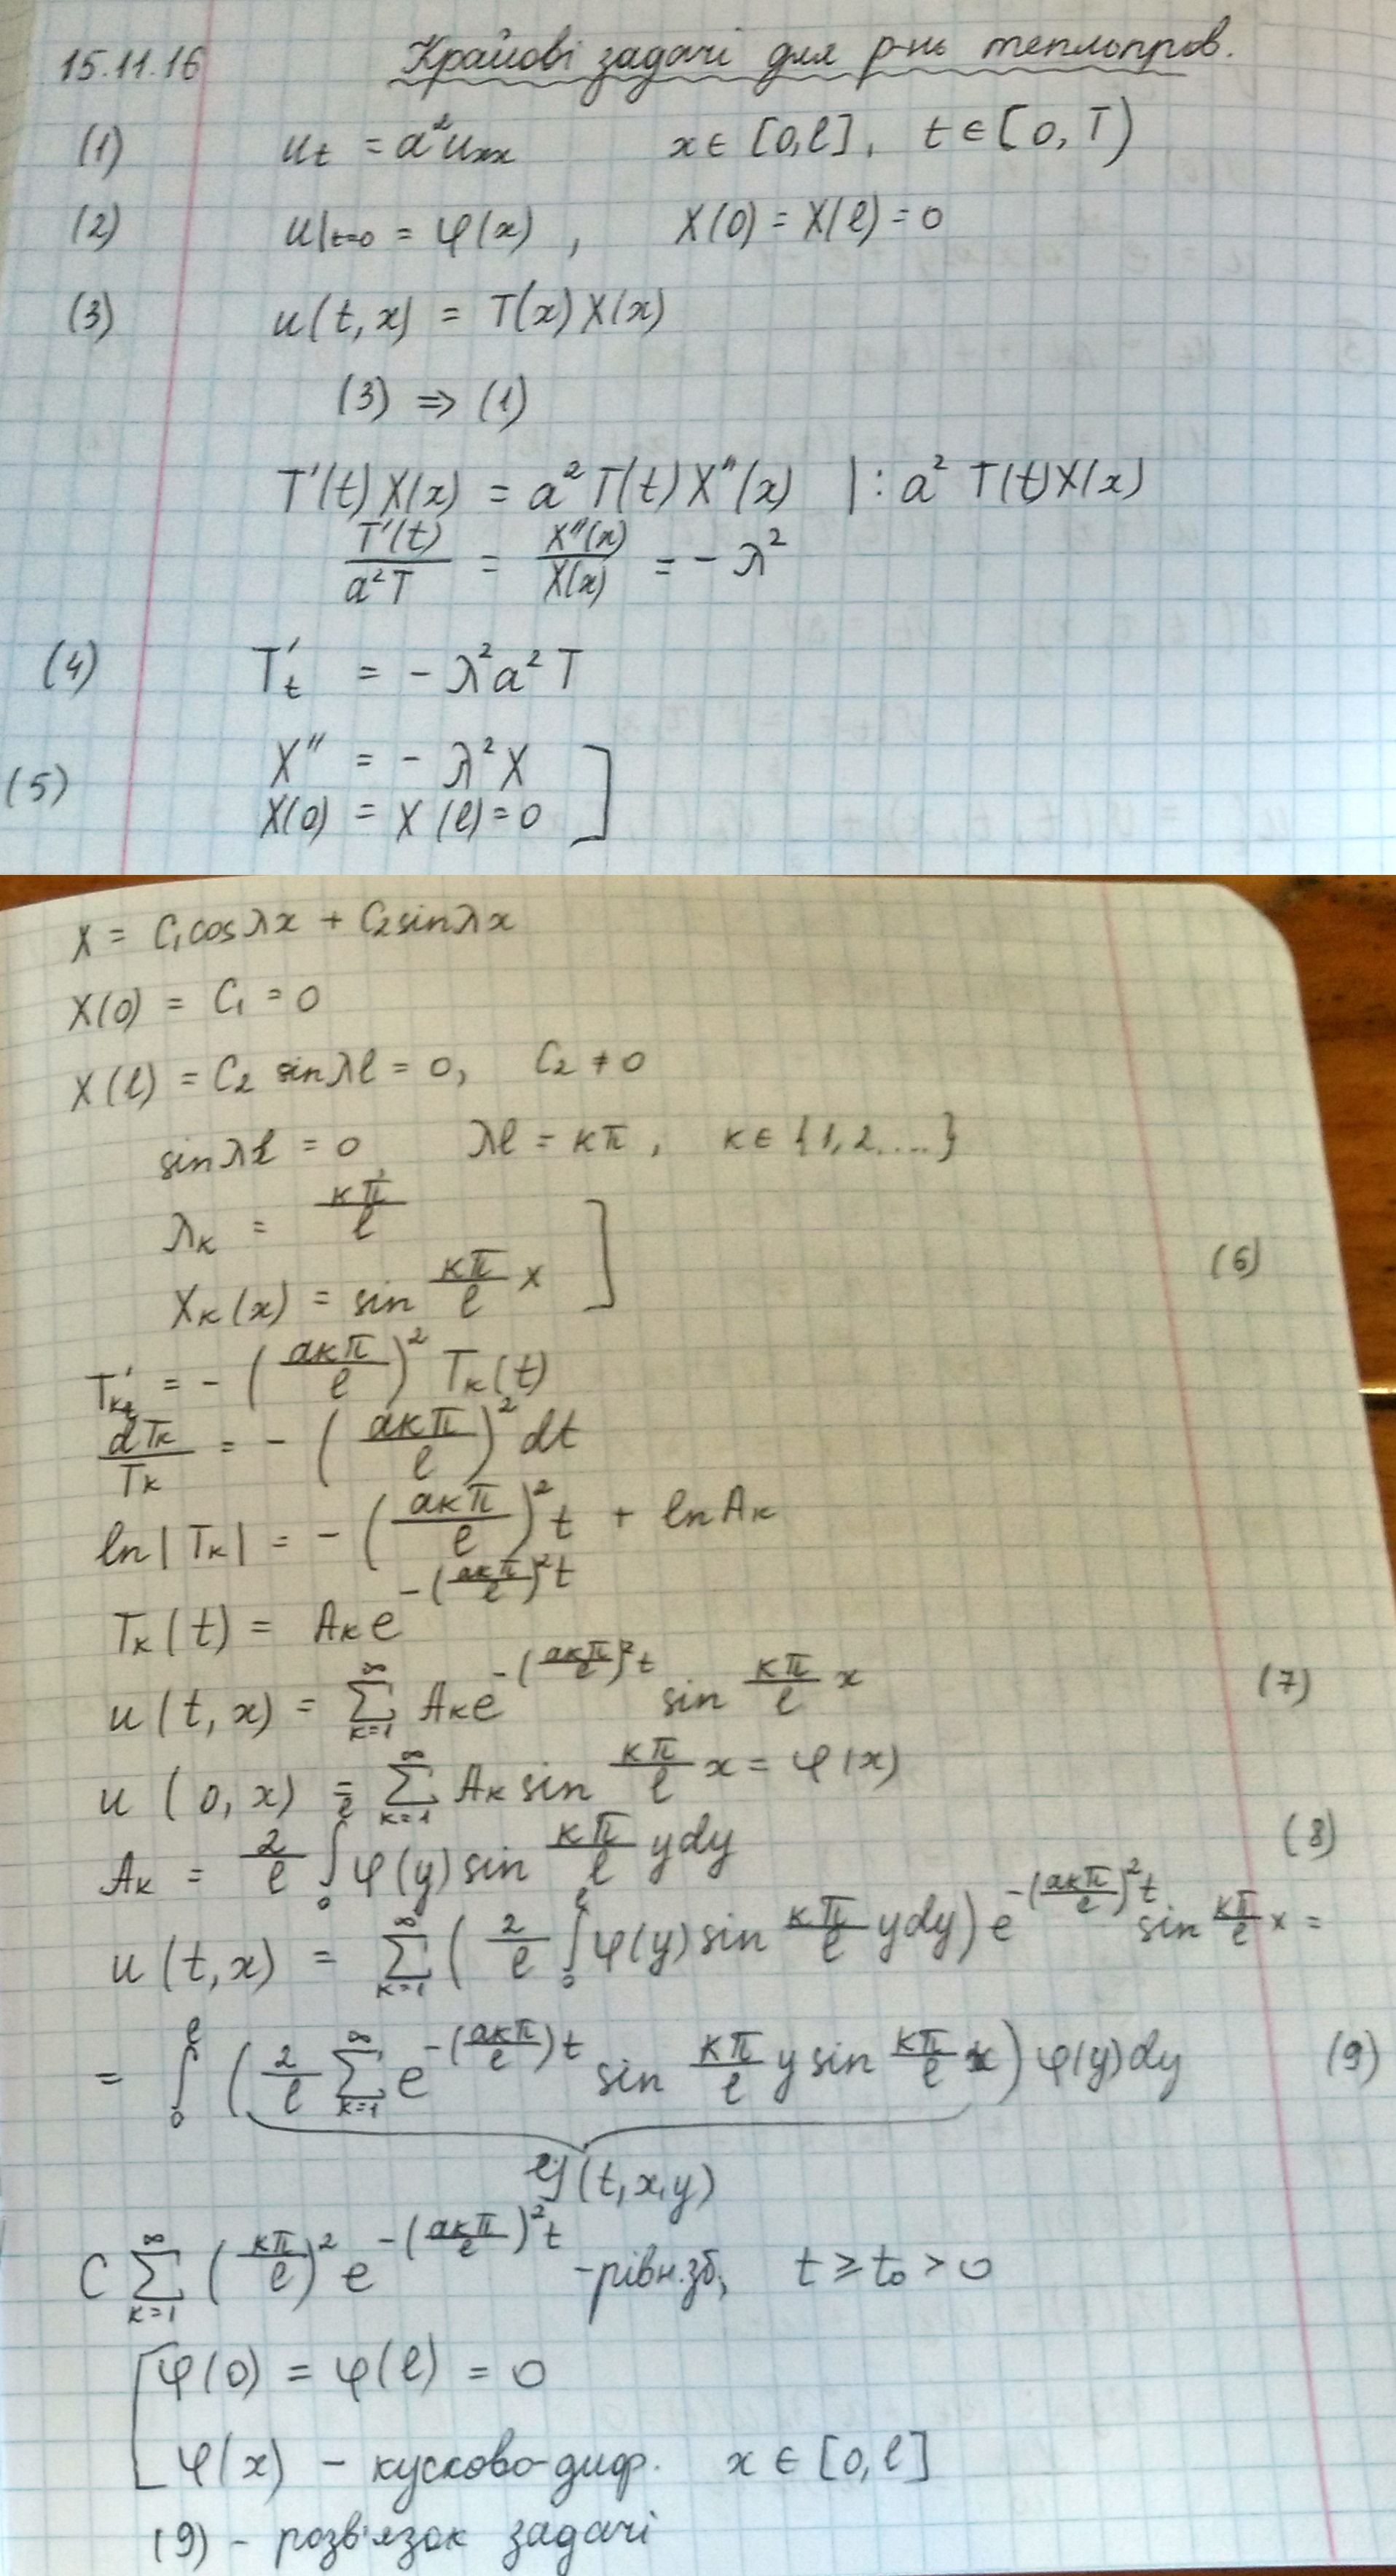 15.11.16 Крайові задачі для р-нь теплопров.
(1) u_t = a²u_xx x ∈ [0, l], t ∈ [0, T)
(2) u|_{t=0} = φ(x), X(0) = X(l) = 0
(3) u(t, x) = T(x) X(x)
(3) ⇒ (1)
T'(t) X(x) = a² T(t) X''(x) | : a² T(t) X(x)
T'(t)/(a²T) = X''(x)/X(x) = - λ²
(4) T'_t = - λ²a² T
(5) X'' = - λ² X ]
X(0) = X(l) = 0
X = C₁cosλx + C₂sinλx
X(0) = C₁ = 0
X(l) = C₂ sinλl = 0, C₂ ≠ 0
sinλl = 0 λl = kπ, k ∈ {1, 2, ...}
λ_k = kπ/l ] (6)
X_k(x) = sin (kπ/l) x
T'_{k t} = - (akπ/l)² T_k(t)
dT_k/T_k = - (akπ/l)² dt
ln|T_k| = - (akπ/l)² t + lnA_k
T_k(t) = A_k e^{-(akπ/l)² t}
u(t, x) = ∑_{k=1}^{∞} A_k e^{-(akπ/l)² t} sin (kπ/l) x (7)
u(0, x) = ∑_{k=1}^{∞} A_k sin (kπ/l) x = φ(x)
A_k = 2/l ∫_0^l φ(y) sin (kπ/l) y dy (8)
u(t, x) = ∑_{k=1}^{∞} (2/l ∫_0^l φ(y) sin (kπ/l) y dy) e^{-(akπ/l)² t} sin (kπ/l) x =
= ∫_0^l (2/l ∑_{k=1}^{∞} e^{-(akπ/l) t} sin (kπ/l) y sin (kπ/l) x) φ(y) dy (9)
(t, x, y)
C ∑_{k=1}^{∞} (kπ/l)² e^{-(akπ/l)² t} - рівн. зб, t ≥ t₀ > 0
[ φ(0) = φ(l) = 0
φ(x) - кусково-диф. x ∈ [0, l]
(9) - розв'язок задачі